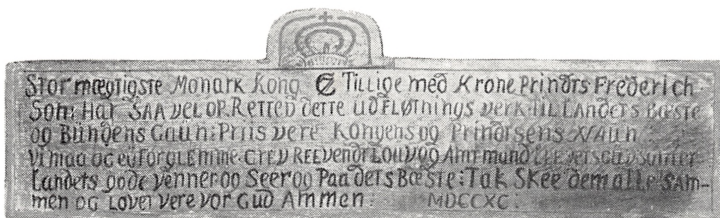 Stor mægtigste Monark Kong C7 Tillige með Krone Prindts Frederich
Som Har SAA vel op Retted dette udFLøtnings verk TIL Landets Bæste
og Bundens Gaun: Priis vere Kongens og Prindsens Naun
Vi maa og ey forglemme
Landets gode venner og Seer og Paa dets Bæste: Tak Skee dem alle SAM-
men og Lovet vere vor Gud Ammen MDCCXC